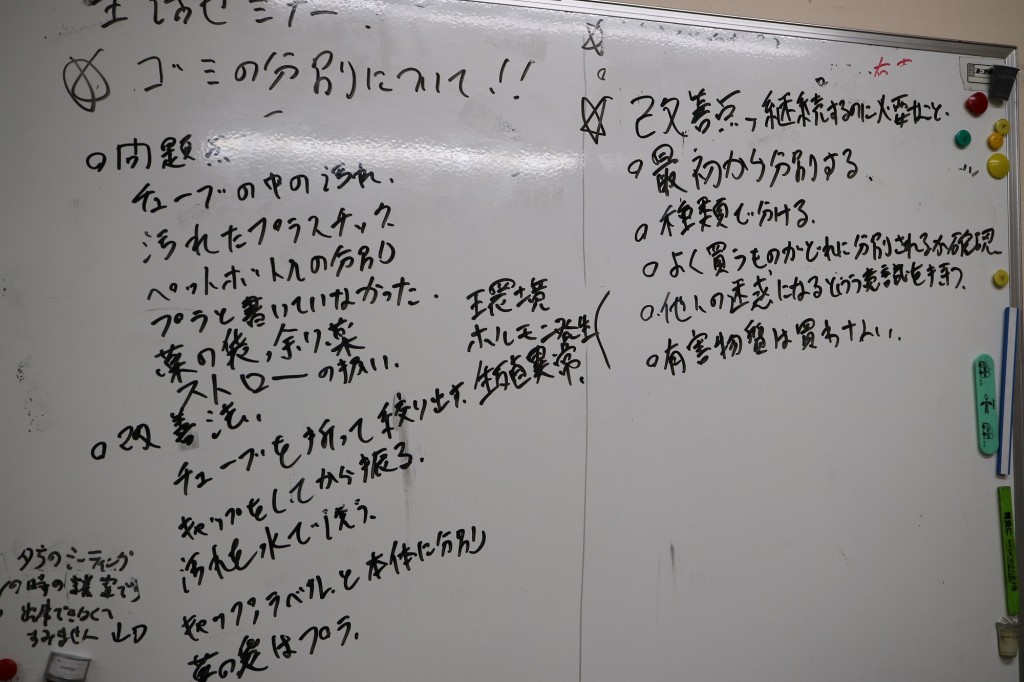 生活セミナー.
ゴミの分別について!!
問題点
チューブの中の汚れ.
汚れたプラスチック
ペットボトルの分別
プラと書いていなかった.
薬の袋,余り薬
ストローの扱い.
改善法.
チューブを折って絞り出す.
キャップをしてから振る.
汚れを水で洗う.
キャップ,ラベル,と本体に分別
薬の袋はプラ.
環境
ホルモン発生
生殖異常.
夕方のミーティング
の時の
出来なくて
すみません
改善点,継続するのに必要なこと.
最初から分別する.
種類で分ける.
よく買うものがどれに分別されるか確認
他人の迷惑になるという意識を持つ.
有害物質は買わない.